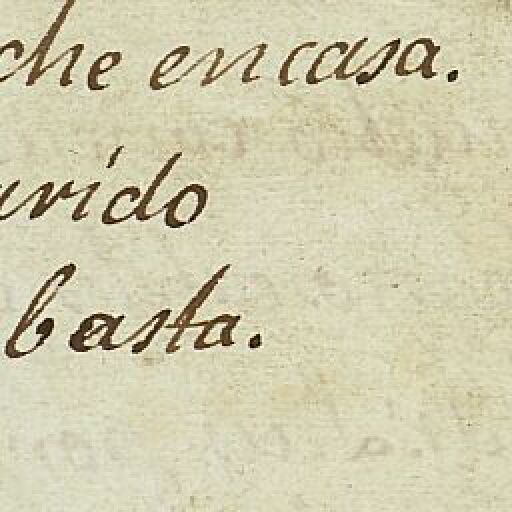 che encasa.
urido
basta.